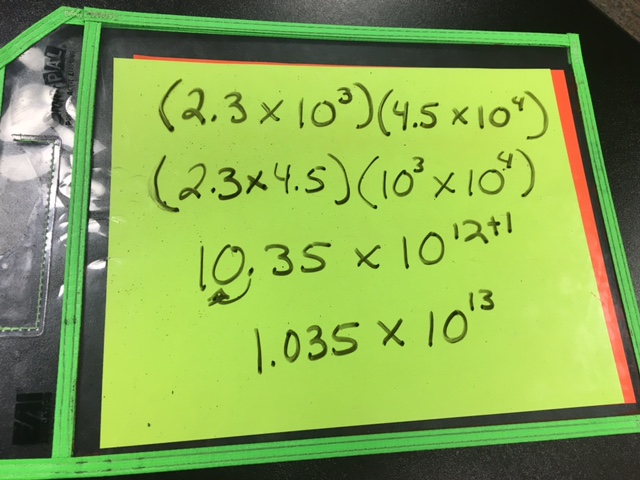 (2.3 × 10³)(4.5 × 10⁴)
(2.3 × 4.5)(10³ × 10⁴)
10.35 × 10¹²⁺¹
1.035 × 10¹³